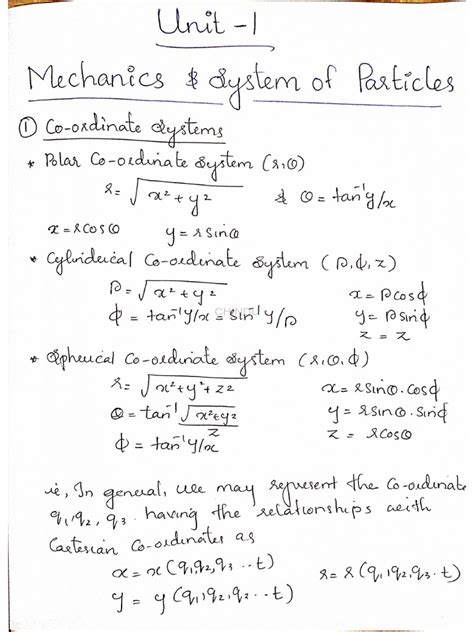 Unit - 1
Mechanics & System of Particles
① Co-ordinate Systems
* Polar Co-ordinate System (r,θ)
r = √x² + y² & θ = tan⁻¹ y/x
x = r cos θ y = r sin θ
* Cylindrical Co-ordinate System (ρ, ϕ, z)
ρ = √x² + y² x = ρ cos ϕ
ϕ = tan⁻¹ y/x = sin⁻¹ y/ρ y = ρ sin ϕ
z = z
* Spherical Co-ordinate System (r, θ, ϕ)
r = √x² + y² + z² x = r sin θ . cos ϕ
θ = tan⁻¹ √x²+y² / z y = r sin θ . sin ϕ
ϕ = tan⁻¹ y/x z = r cos θ
ie, In general, we may represent the Co-ordinate
q₁, q₂, q₃ having the relationships with
Cartesian Co-ordinates as
x = x (q₁, q₂, q₃ .. t) r = r (q₁, q₂, q₃ . t)
y = y (q₁, q₂, q₂ .. t)